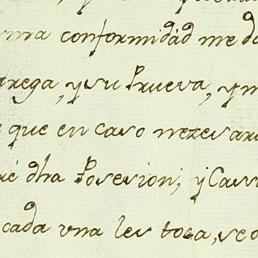 conformidad me d
rega, y su Prueva, y m
que en caso nezesar
dha Posesion, y Cas
cada vna les toca, se o